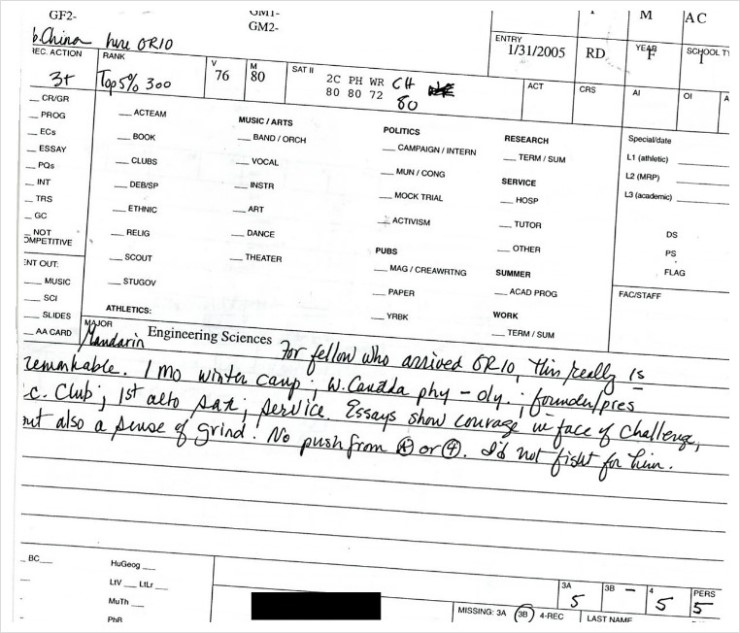 GF2- GM1- M AC
GM2-
b.China here GR10 ENTRY 1/31/2005 RD YEAR F SCHOOL TY I
REC. ACTION 3+ RANK Top 5% 300 V 76 M 80 SAT II 2C PH WR CH
80 80 72 80 ACT CRS AI OI A
__ CR/GR
__ PROG
__ ECs
__ ESSAY
__ PQs
__ INT
__ TRS
__ GC
__ NOT
OMPETITIVE
ENT OUT:
__ MUSIC
__ SCI
__ SLIDES
__ AA CARD
__ ACTEAM
__ BOOK
__ CLUBS
__ DEB/SP
__ ETHNIC
__ RELIG
__ SCOUT
__ STUGOV
ATHLETICS:
MUSIC / ARTS
__ BAND / ORCH
__ VOCAL
__ INSTR
__ ART
__ DANCE
__ THEATER
POLITICS
__ CAMPAIGN / INTERN
__ MUN / CONG
__ MOCK TRIAL
__ ACTIVISM
PUBS
__ MAG / CREAWRTNG
__ PAPER
__ YRBK
RESEARCH
__ TERM / SUM
SERVICE
__ HOSP
__ TUTOR
__ OTHER
SUMMER
__ ACAD PROG
WORK
__ TERM / SUM
Special/date
L1 (athletic)
L2 (MRP)
L3 (academic)
DS
PS
FLAG
FAC/STAFF
MAJOR Engineering Sciences
Mandarin For fellow who arrived GR10, this really is
remarkable. 1 mo winter camp; W.Canada phy-oly.; founder/pres
c. Club; 1st alto sax; service. Essays show courage in face of challenge,
but also a sense of grind. No push from or 4. I'd not fight for him.
__ BC__ HuGeog __
__ LtV __ LtLr __
__ MuTh __
PhB
3A 5 3B – 4 5 PERS 5
MISSING: 3A 3B 4-REC LAST NAME